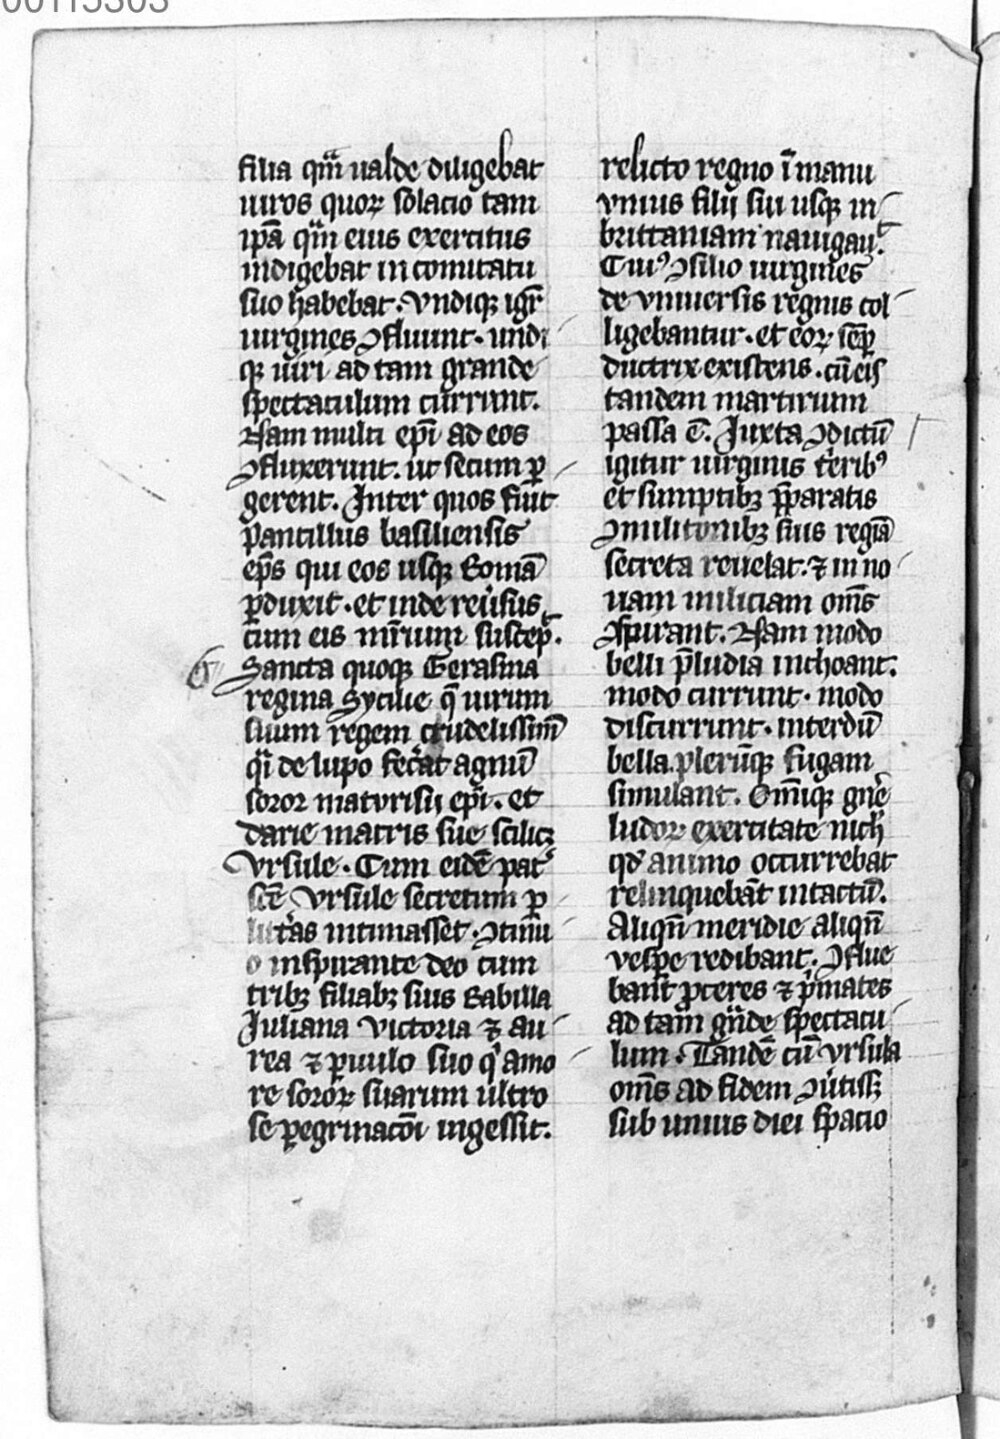 00115303
filia qm̄ ualde diligebat
uiros quoꝝ solacio tam
ip̄a qm̄ eius exercitus
indigebat in comitatu
suo habebat. Vndiqꝫ igr̄
uirgines ꝯfluunt. undi
qꝫ uiri ad tam grande
spectaculum currunt.
Nam multi ep̄i ad eos
ꝯfluxerunt. ut secum ꝑ
gerent. Inter quos fuīt
pantillus basiliensis
ep̄s qui eos usqꝫ Romā
ꝑduxit. et inde reu̾sus
cum eis mr̄ium suscep̄.
Sancta quoqꝫ Gerasina
regina Sycilie q̄ uirum
suum regem crudelissim̄
qi de lupo fec̾at agnū
soror maturisii ep̄i. et
darie matris sue scilicꝫ
Vrsule. Cum eidē pat̾
sc̄e Vrsule secretum ꝑ
litt̾as intimasset. ꝯtinu
o inspirante deo cum
tribꝫ filiabꝫ suis Babilla
Iuliana Victoria ⁊ au
rea ⁊ ꝑuulo suo q̾ amo
re soroꝝ suarum ultro
se ꝑegrinac̄oi ingessit.
relicto regno ī manu
vnius filii sui usqꝫ in
brittaniam nauigau̾.
Cuiꝰ ꝯsilio uirgines
de vniuersis regnis col
ligebantur. et eoꝝ semꝑ
ductrix existens. cū eis
tandem martirium
passa ē. Iuxta ꝯdictū
igitur uirginis t̾eribꝰ
et sumptibꝫ p̄paratis
ꝯmilitonibꝫ suis regia
secreta reuelat. ⁊ in no
uam miliciam om̄s
ꝯspirant. Nam modo
belli p̄ludia inchoant.
modo currunt. modo
discurrunt. interdū
bella. plerūqꝫ fugam
simulant. Omīqꝫ gn̄e
ludoꝝ exercitate nich̄
qd̾ animo occurrebat
relinquebāt intactū.
Aliqn̄ meridie aliqn̄
vesꝑe redibant. ꝯflue
bant ꝓceres ⁊ p̾mates
ad tam gn̄de spectacu
lum. Tandē cū vrsula
om̄s ad fidem ꝯu̾tissꝫ
sub unius diei spacio